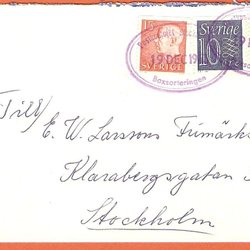 15
SVERIGE
Sverige
10
19 DEC 19
Boxsorteringen
Till/
E. W. Larssons Frimärks
Klarabergsgatan
Stockholm